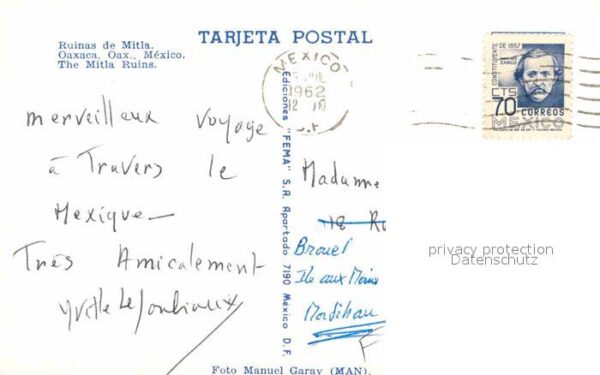 TARJETA POSTAL
Ruinas de Mitla.
Oaxaca, Oax., México.
The Mitla Ruins.
MEXICO
1962
D.F.
CONSTITUYENTE DE 1857
ZARCO
CTS
70
CORREOS
MEXICO
merveilleux voyage
à Travers le
Mexique —
Très Amicalement
Yvette
Ediciones "FEMA" S.A. Apartado 7190 Mexico D.F.
Madame
18
Brouel
Ile aux Moines
Morbihan
F
privacy protection
Datenschutz
Foto Manuel Garay (MAN).